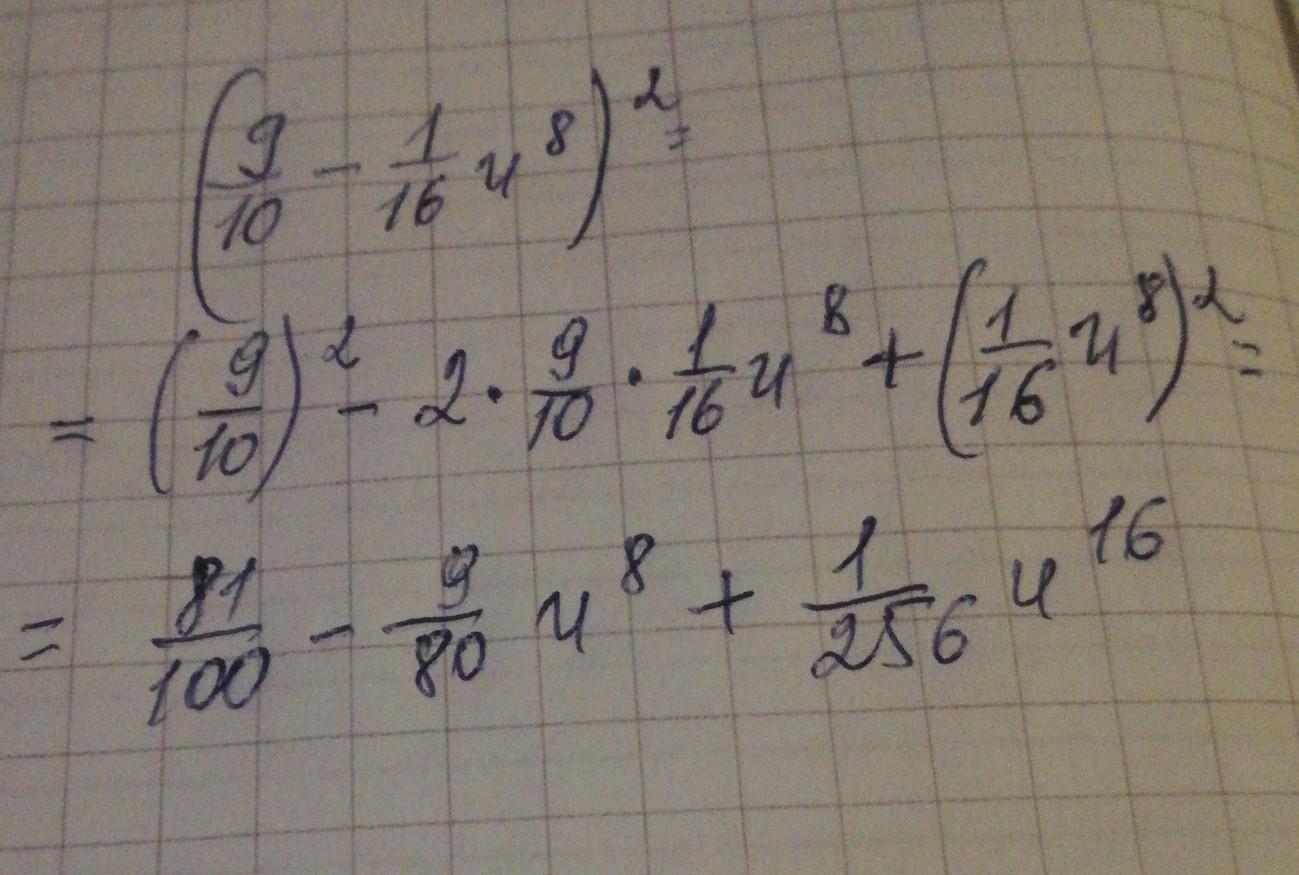 (9/10 - 1/16 u⁸)² =
= (9/10)² - 2 · 9/10 · 1/16 u⁸ + (1/16 u⁸)² =
= 81/100 - 9/80 u⁸ + 1/256 u¹⁶